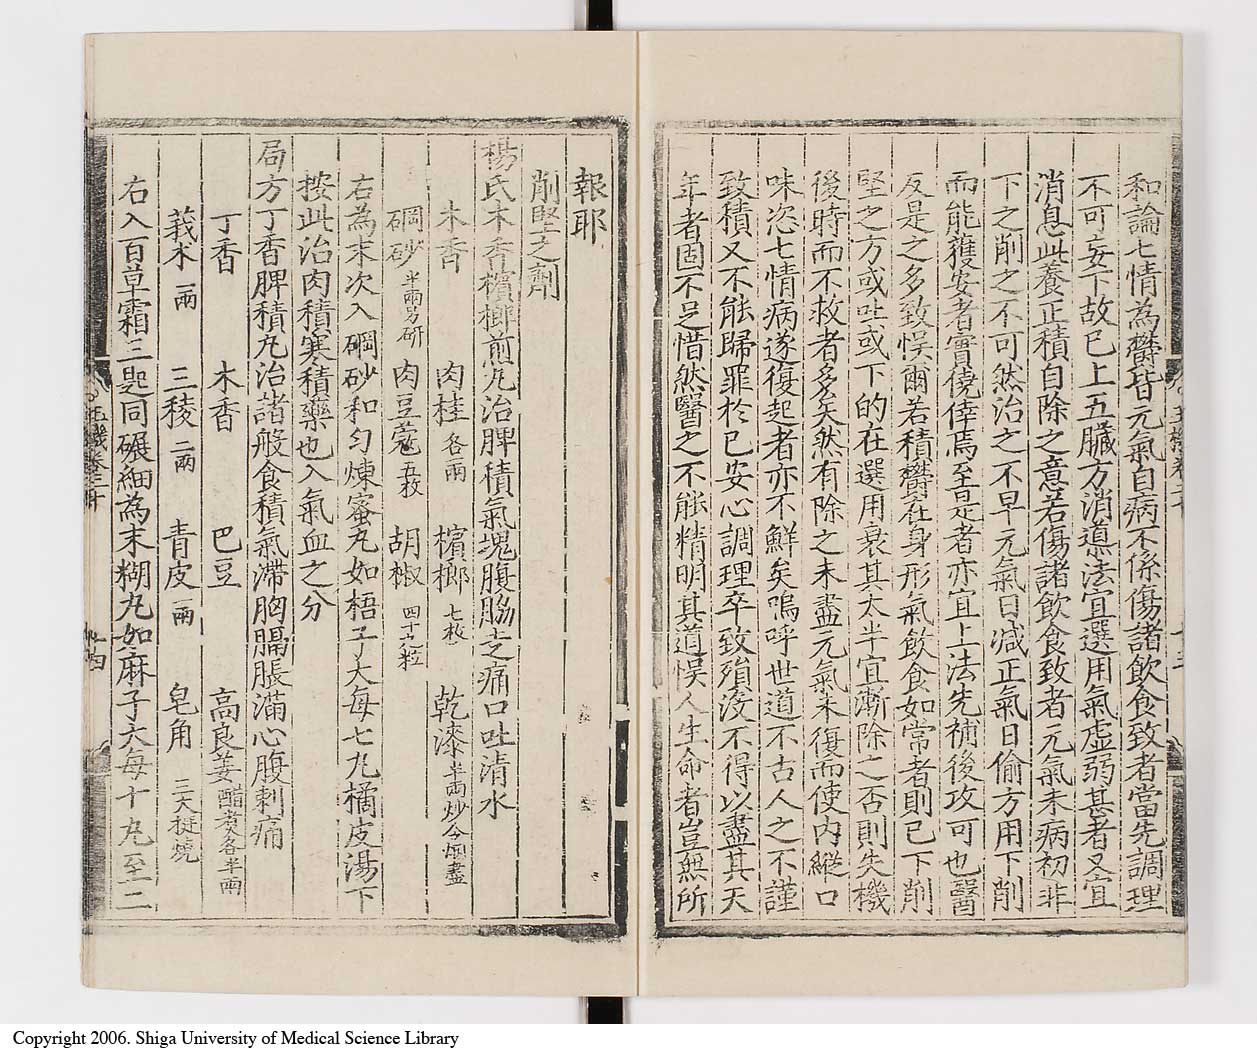 和論七情為鬱皆元氣自病不係傷諸飲食致者當先調理
不可妄下故已上五臟方消導法宜選用氣虛弱甚者又宜
消息此養正積自除之意若傷諸飲食致者元氣未病初非
下之削之不可然治之不早元氣日減正氣日偷方用下削
而能獲安者實僥倖焉至是者亦宜上法先補後攻可也醫
反是之多致悮爾若積鬱在身形氣飲食如常者則已下削
堅之方或吐或下的在選用衰其太半宜漸除之否則失機
後時而不救者多矣然有除之未盡元氣未復而使內縱口
味恣七情病遂復起者亦不鮮矣嗚呼世道不古人之不謹
致積又不能歸罪於已安心調理卒致殞沒不得以盡其天
年者固不足惜然醫之不能精明其道悮人生命者豈無所
報耶
削堅之劑
楊氏木香檳榔煎丸治脾積氣塊腹脇走痛口吐清水
木香 肉桂各兩 檳榔七枚 乾漆半兩炒令烟盡
硇砂半兩另研 肉豆蔻五枚 胡椒四十粒
右為末次入硇砂和勻煉蜜丸如梧子大每七丸橘皮湯下
按此治肉積寒積藥也入氣血之分
局方丁香脾積丸治諸般食積氣滯胸膈脹滿心腹刺痛
丁香 木香 巴豆 高良姜醋煮各半兩
莪朮一兩 三稜二兩 青皮一兩 皂角三大梃燒
右入百草霜三匙同碾細為末糊丸如麻子大每十丸至二